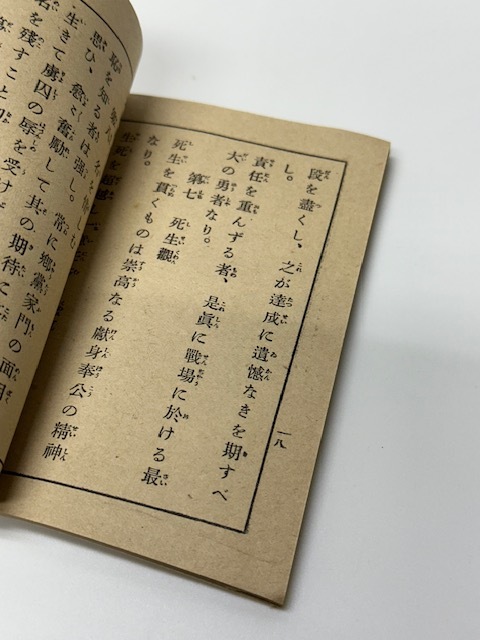 一八
段を盡くし、之が達成に遺憾なきを期すべ
し。
責任を重んずる者、是眞に戰場に於ける最
大の勇者なり。
第七 死生觀
死生を貫くものは崇高なる獻身奉公の精神
なり。
生死を超越し
恥を知る者は強し。常に郷黨家門の面目
思ひ、愈々奮勵して其の期待に
生きて虜囚の辱を受け
名を殘すこと勿